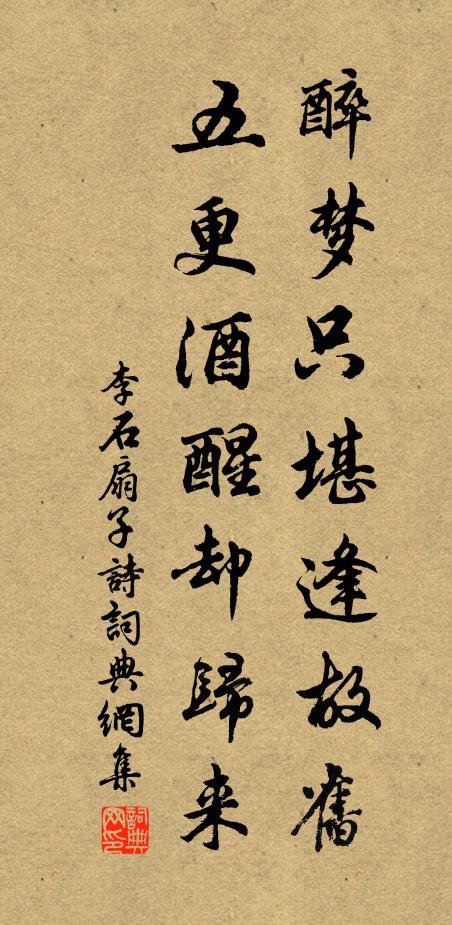 醉梦只堪逢故舊
五更酒醒却歸来
李石扇子詩詞典網集
詞典网印